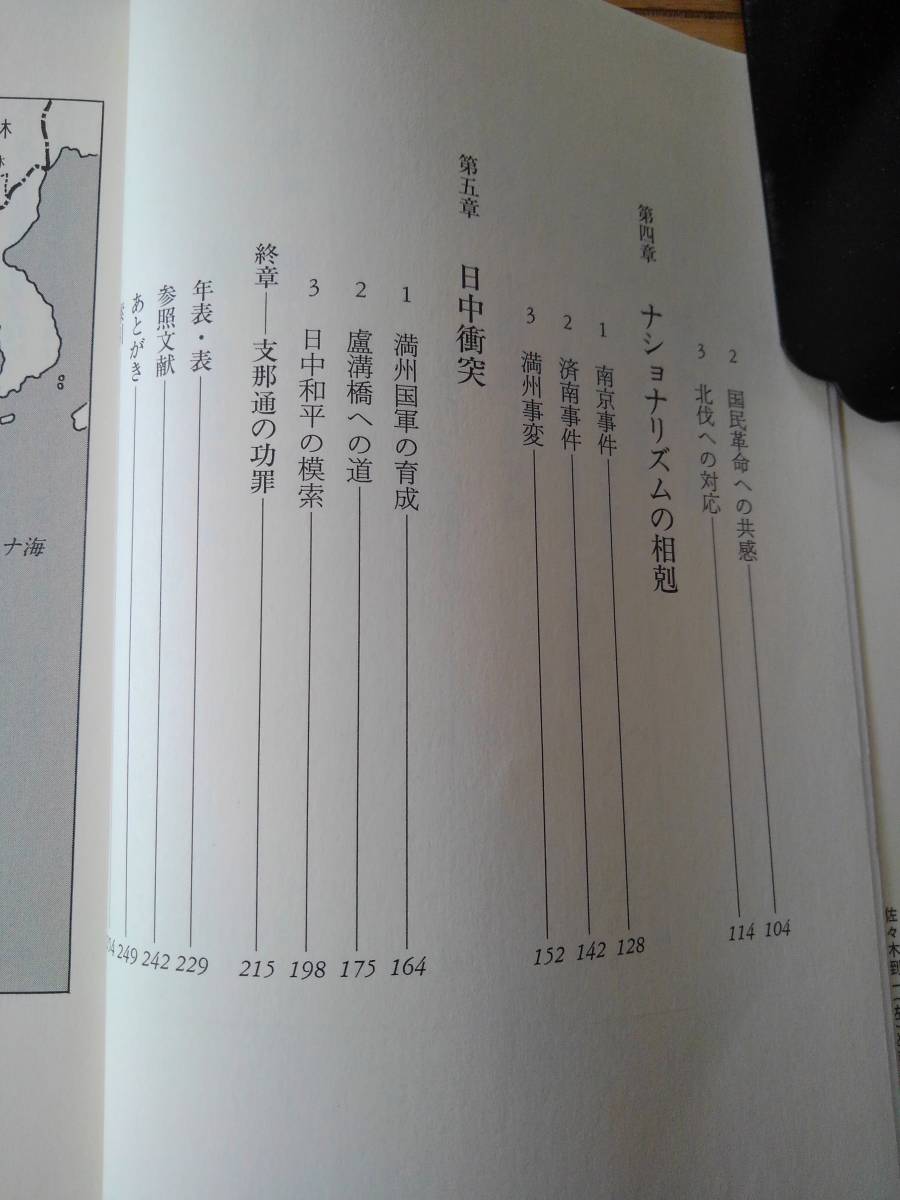 2 国民革命への共感 104
3 北伐への対応 114
第四章 ナショナリズムの相剋
1 南京事件 128
2 済南事件 142
3 満州事変 152
第五章 日中衝突
1 満州国軍の育成 164
2 盧溝橋への道 175
3 日中和平の模索 198
終章─支那通の功罪 215
年表・表 229
参照文献 242
あとがき 249
ナ海
佐々木到一